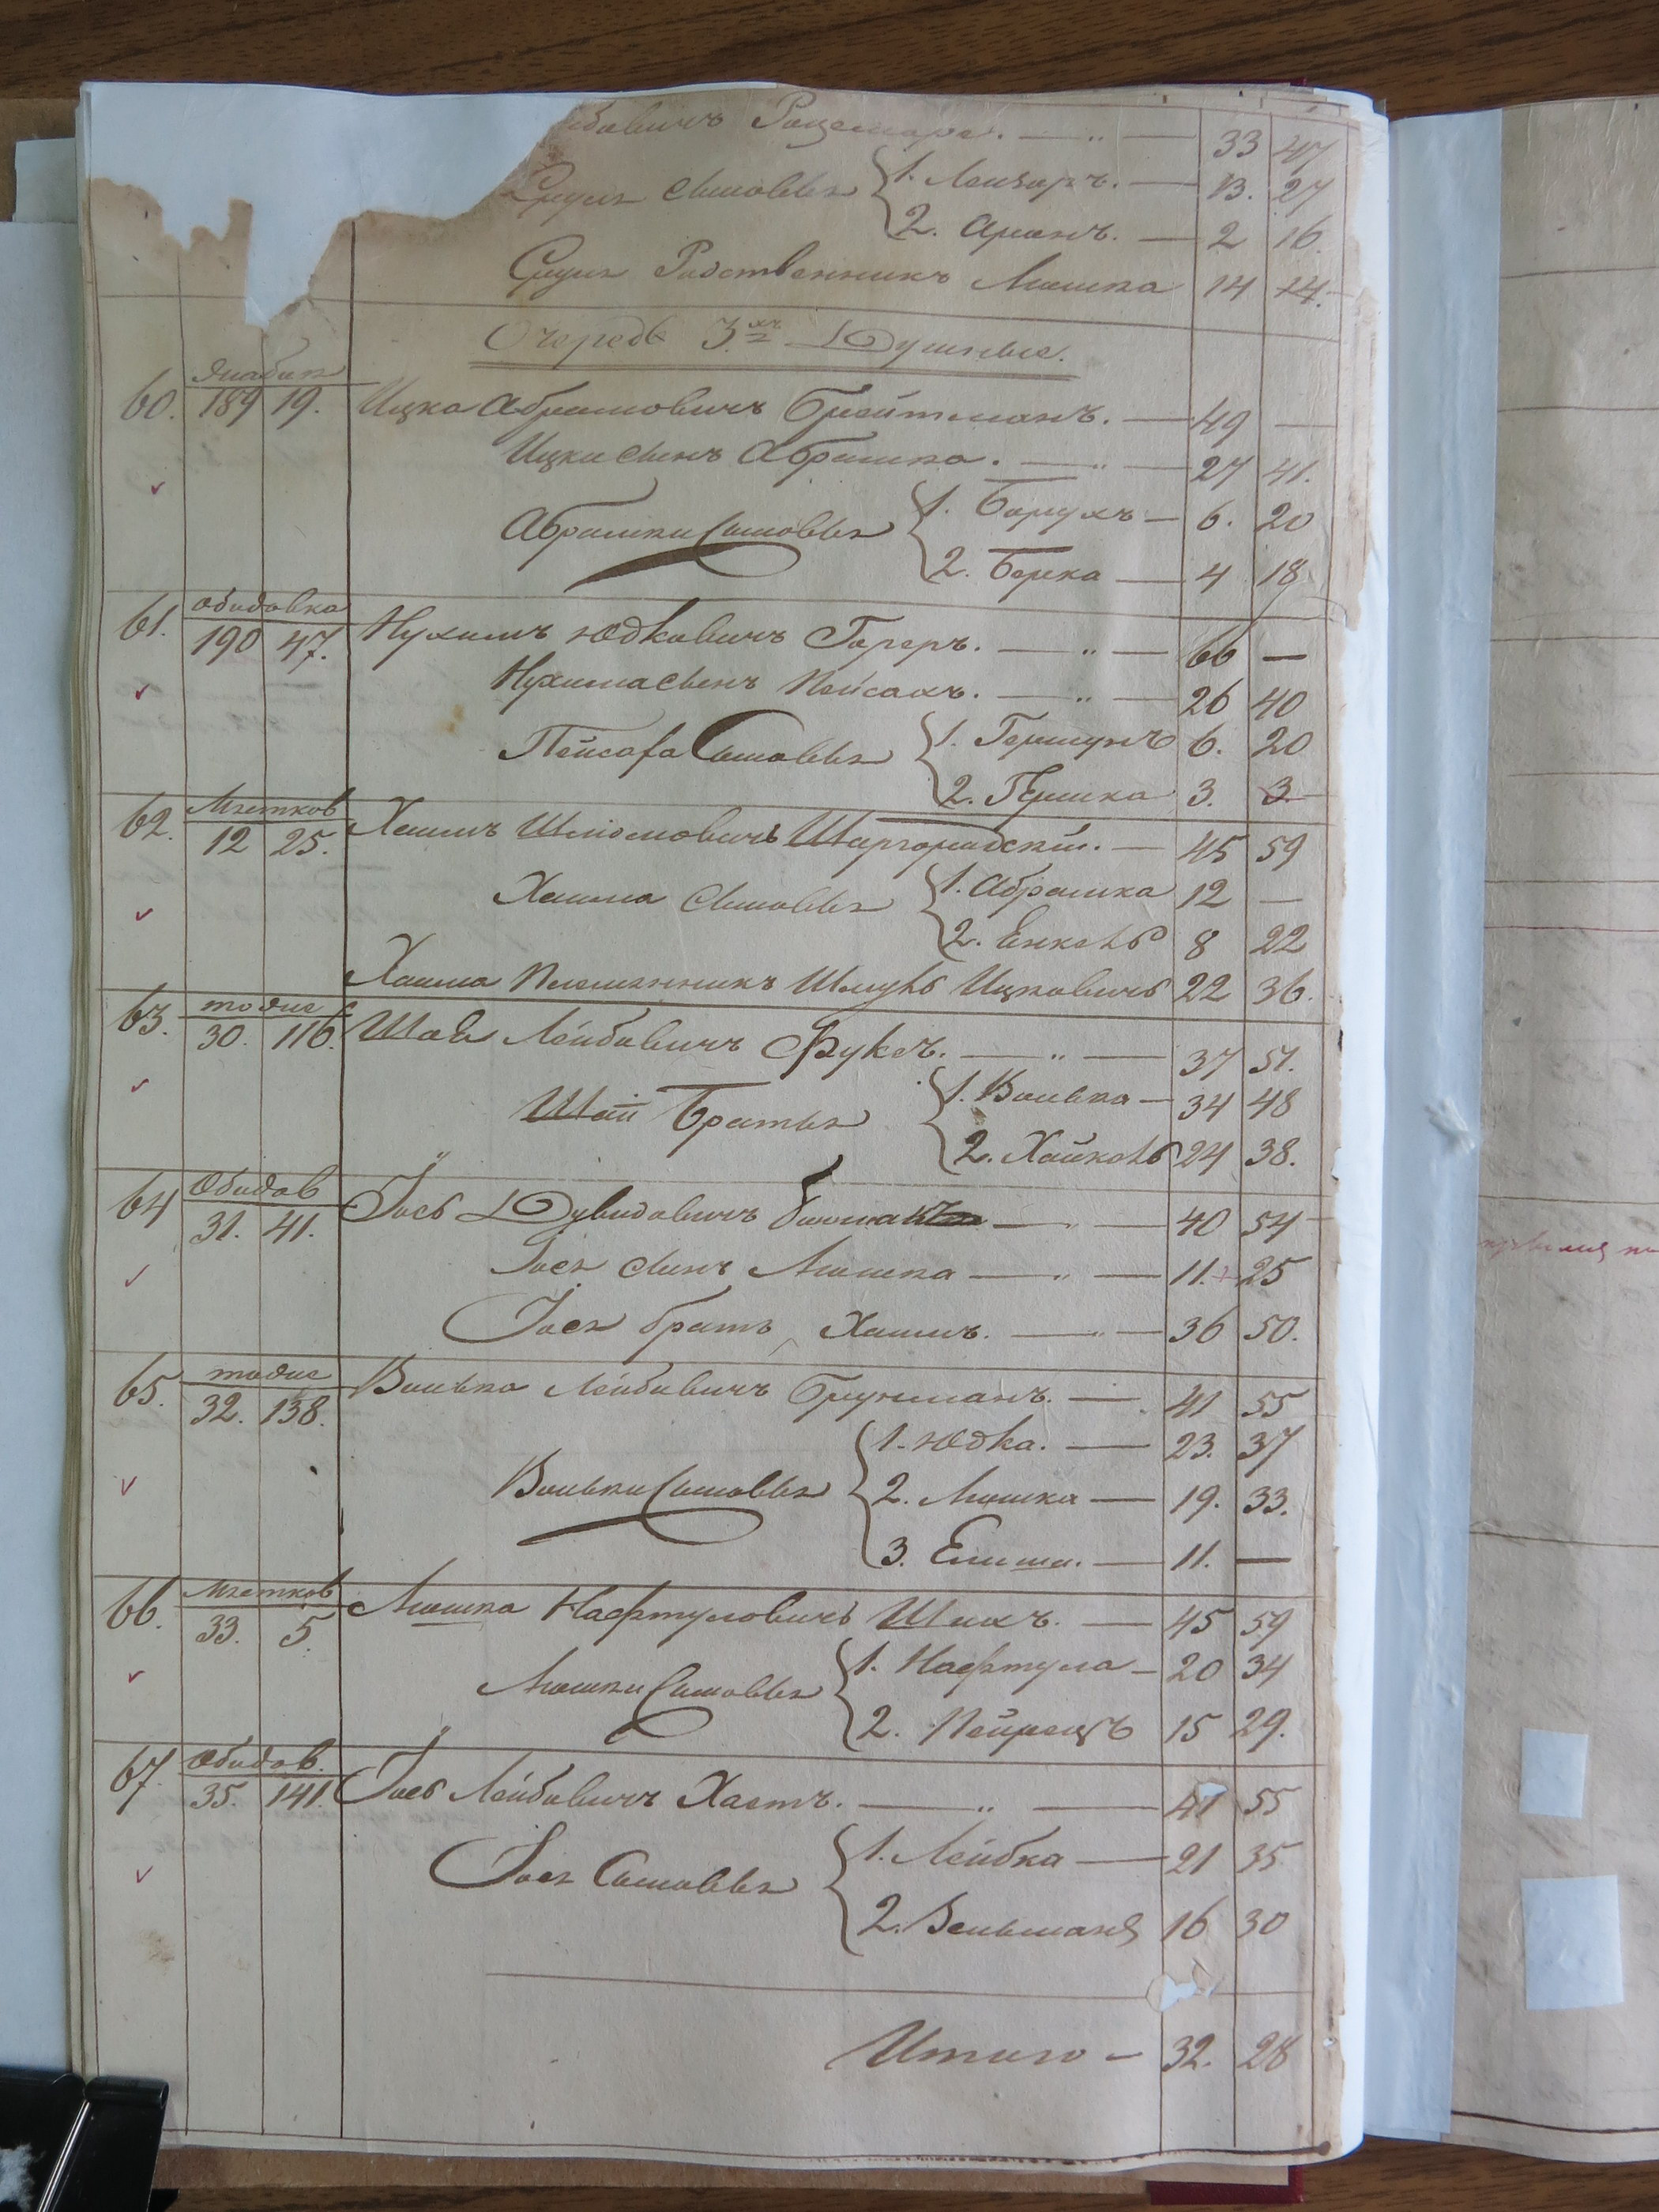 33 47
Сруля сыновья 1. Лейзоръ. — 13. 27
2. Аронъ. — 2 16.
Сруля Родственникъ Мошка 14 14.
Очередь 3хъ Душные.
60. 189 19. Ицко Абрамовичъ Бройтманъ. — 49 —
Ицки сынъ Абрашко. — „ — 27 41.
Абрашки Сыновья 1. Борухъ — 6. 20
2. Берка — 4 18
Обидовка
61. 190 47. Нухимъ Юдковичъ Гореръ. — „ — 66 —
Нухима сынъ Пейсахъ. — „ — 26 40
Пейсаха Сыновья 1. Гершунъ 6. 20
2. Гершко 3. 3.
Мястков
62. 12 25. Хаимъ Шлиомовичъ Шаргородскій. — 45 59
Хаима Сыновья 1. Абрашка 12 —
2. Енкель 8 22
Хаима Племянникъ Шмуль Ицковичъ 22 36.
тоже
63. 30. 116. Шая Лейбовичъ Фуксъ. — „ — 37 51.
Шаи Братья 1. Волько — 34 48
2. Хайкель 24 38.
Обидов
64 31. 41. Іось Дувидовичъ — „ — 40 54
Іося сынъ Мошка — „ — 11. 25
Іося братъ Хаимъ. — „ — 36 50.
тоже
65. 32. 138. Волько Лейбовичъ Грунманъ. — 41 55
Вольки Сыновья 1. Юдка. — 23. 37
2. Мошка — 19. 33.
3. — 11. —
Мястков
66. 33. 5. Мошко Нафтуловичъ Шихъ. — 45 59
Мошки Сыновья 1. Нафтула — 20 34
2. Пейрецъ 15 29.
Обидов.
67. 35. 141. Іось Лейбовичъ Хаетъ. — „ — 41 55
Іося Сыновья 1. Лейбка — 21 35
2. Вельманъ 16 30
Итого — 32. 28